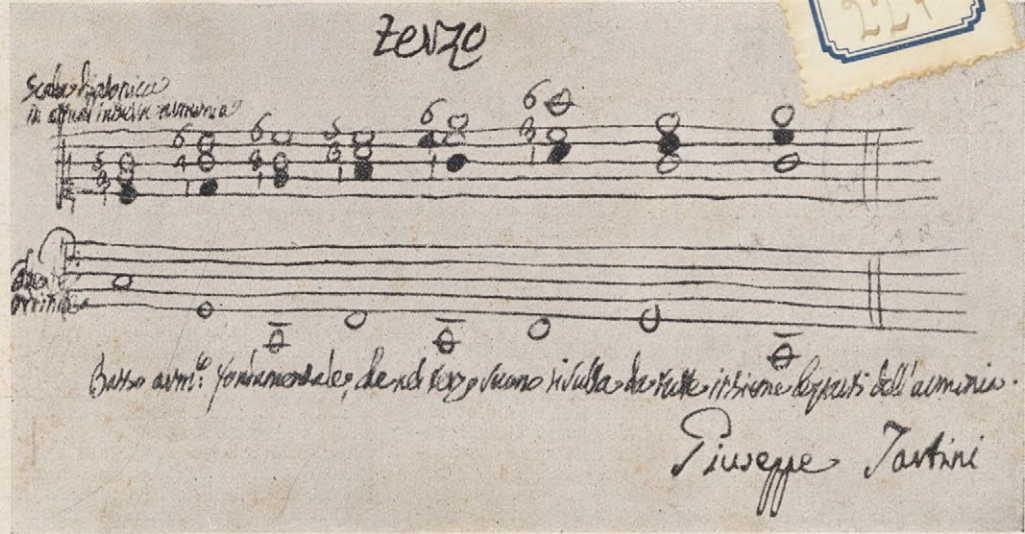 Terzo
227
Scala diatonica
in armonia
6 6 5 6 6
5 4 3 3 4 3
3 1 1 1 1 1
Basso arm.º fondamentale, che nel terzo suono risulta da tutte insieme le parti dell'armonia.
Giuseppe Tartini